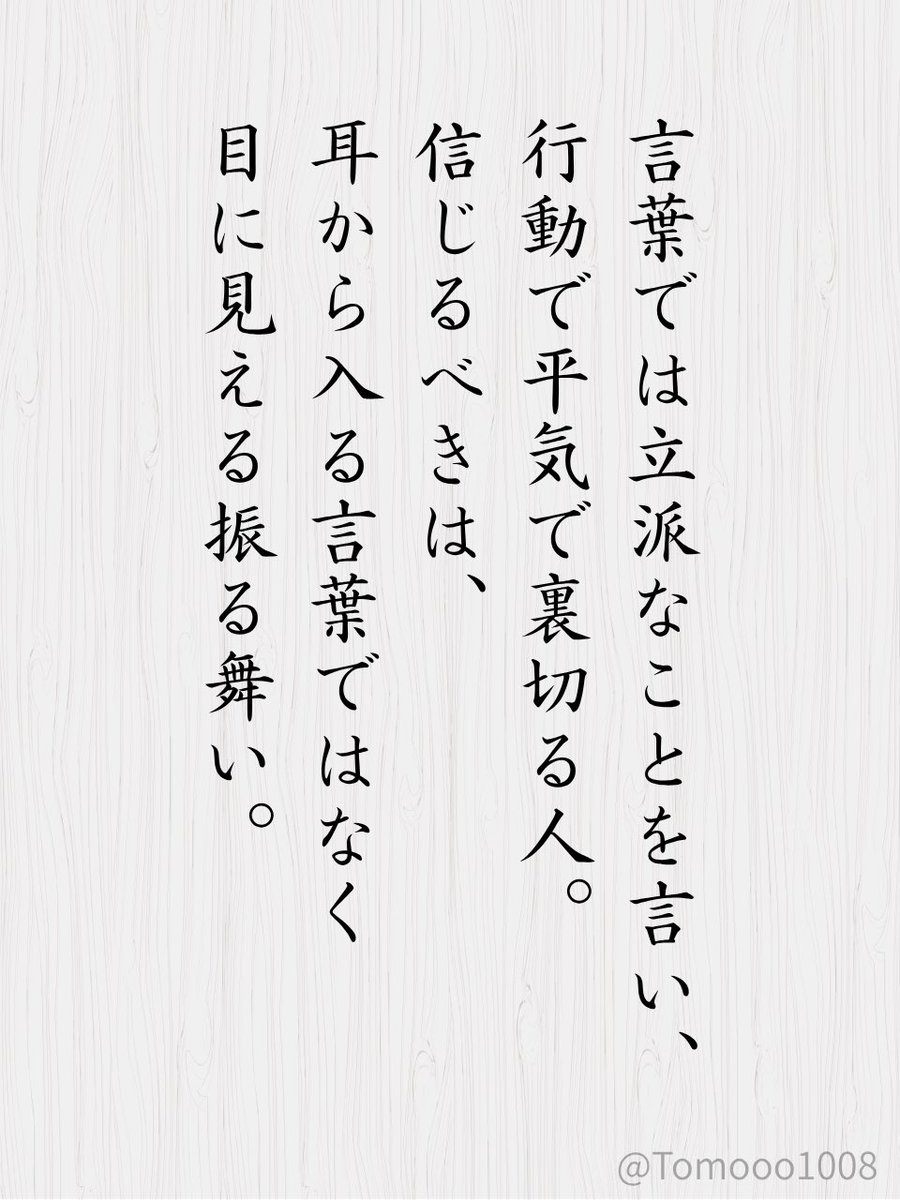 言葉では立派なことを言い、
行動で平気で裏切る人。
信じるべきは、
耳から入る言葉ではなく
目に見える振る舞い。
@Tomooo1008